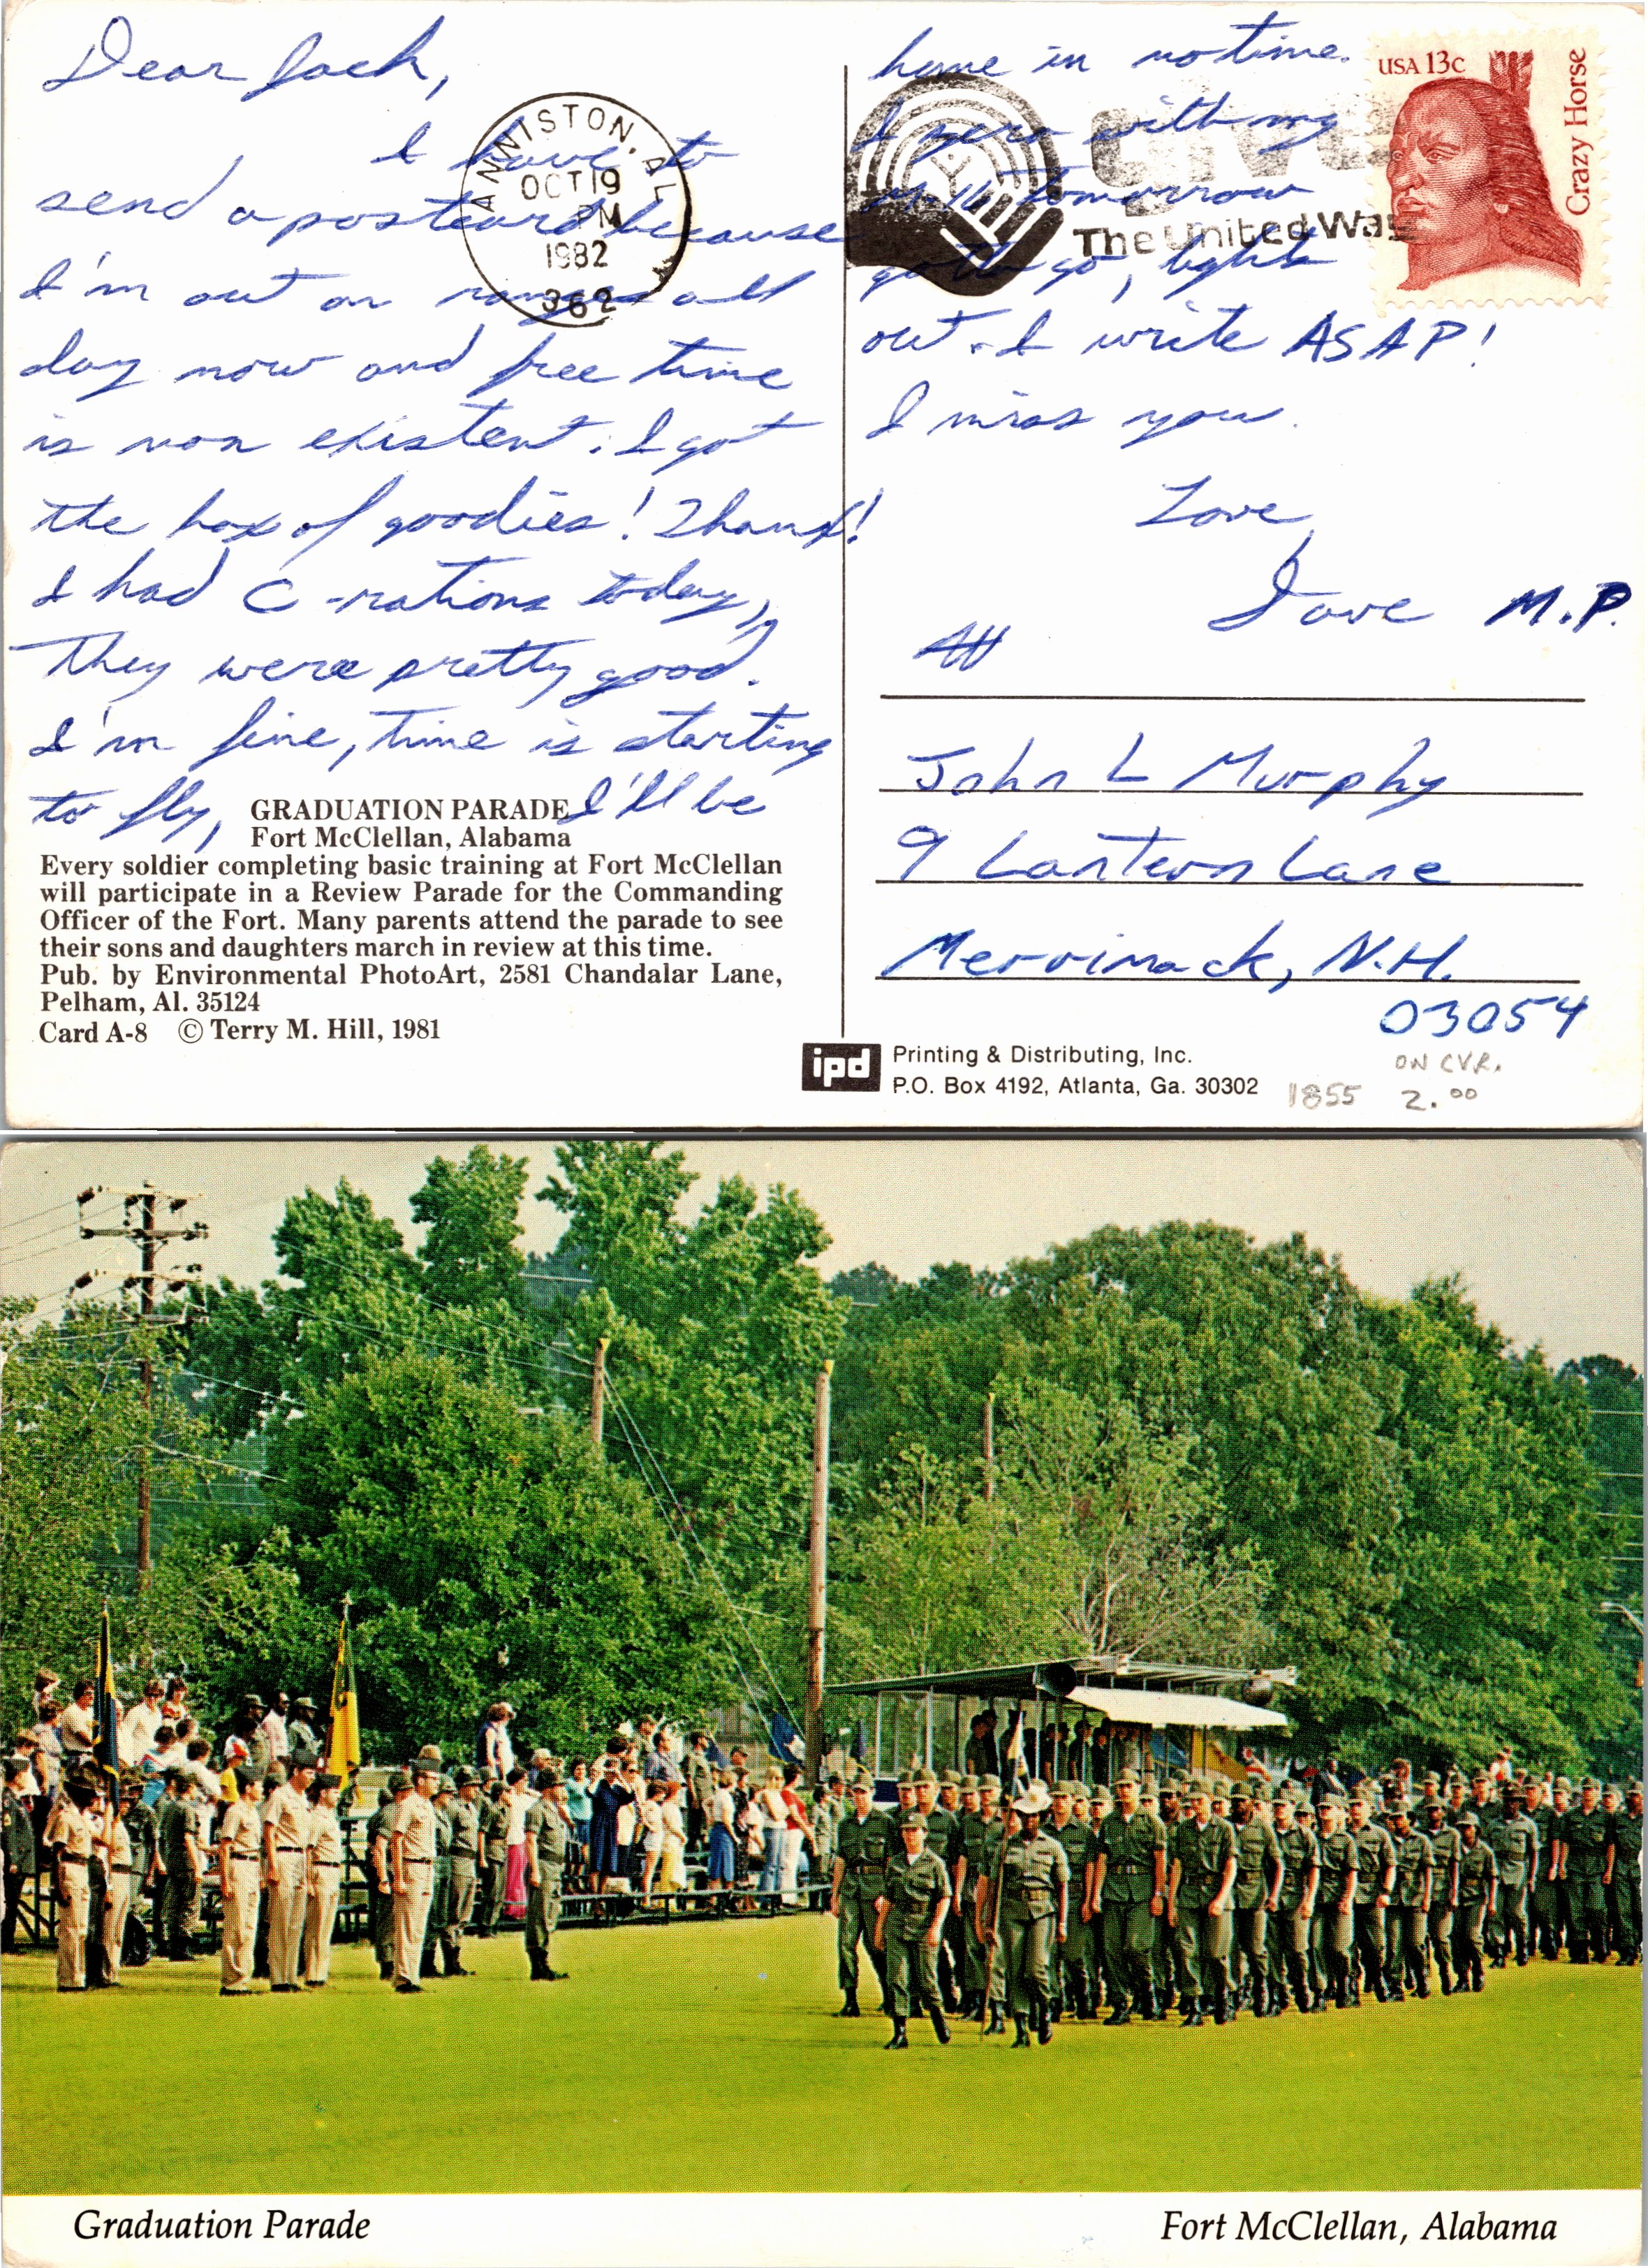 Dear Jack,
I have to
send a postcard because
I'm out on ranges all
day now and free time
is non existent. I got
the box of goodies! Thanx!
I had C-rations today,
They were pretty good.
I'm fine, time is starting
to fly, I'll be
GRADUATION PARADE
Fort McClellan, Alabama
Every soldier completing basic training at Fort McClellan
will participate in a Review Parade for the Commanding
Officer of the Fort. Many parents attend the parade to see
their sons and daughters march in review at this time.
Pub. by Environmental PhotoArt, 2581 Chandalar Lane,
Pelham, Al. 35124
Card A-8 © Terry M. Hill, 1981
ANNISTON, AL
OCT 19
PM
1982
362
home in no time.
I zero with my
M-16 tomorrow
gotta go, lights
out. I write ASAP!
I miss you.
Love,
Dave M.P.
The United Way
USA 13c
Crazy Horse
John L Murphy
9 Lantern Lane
Merrimack, N.H.
03054
ipd
Printing & Distributing, Inc.
P.O. Box 4192, Atlanta, Ga. 30302
ON CVR.
1855 2.00
Graduation Parade
Fort McClellan, Alabama